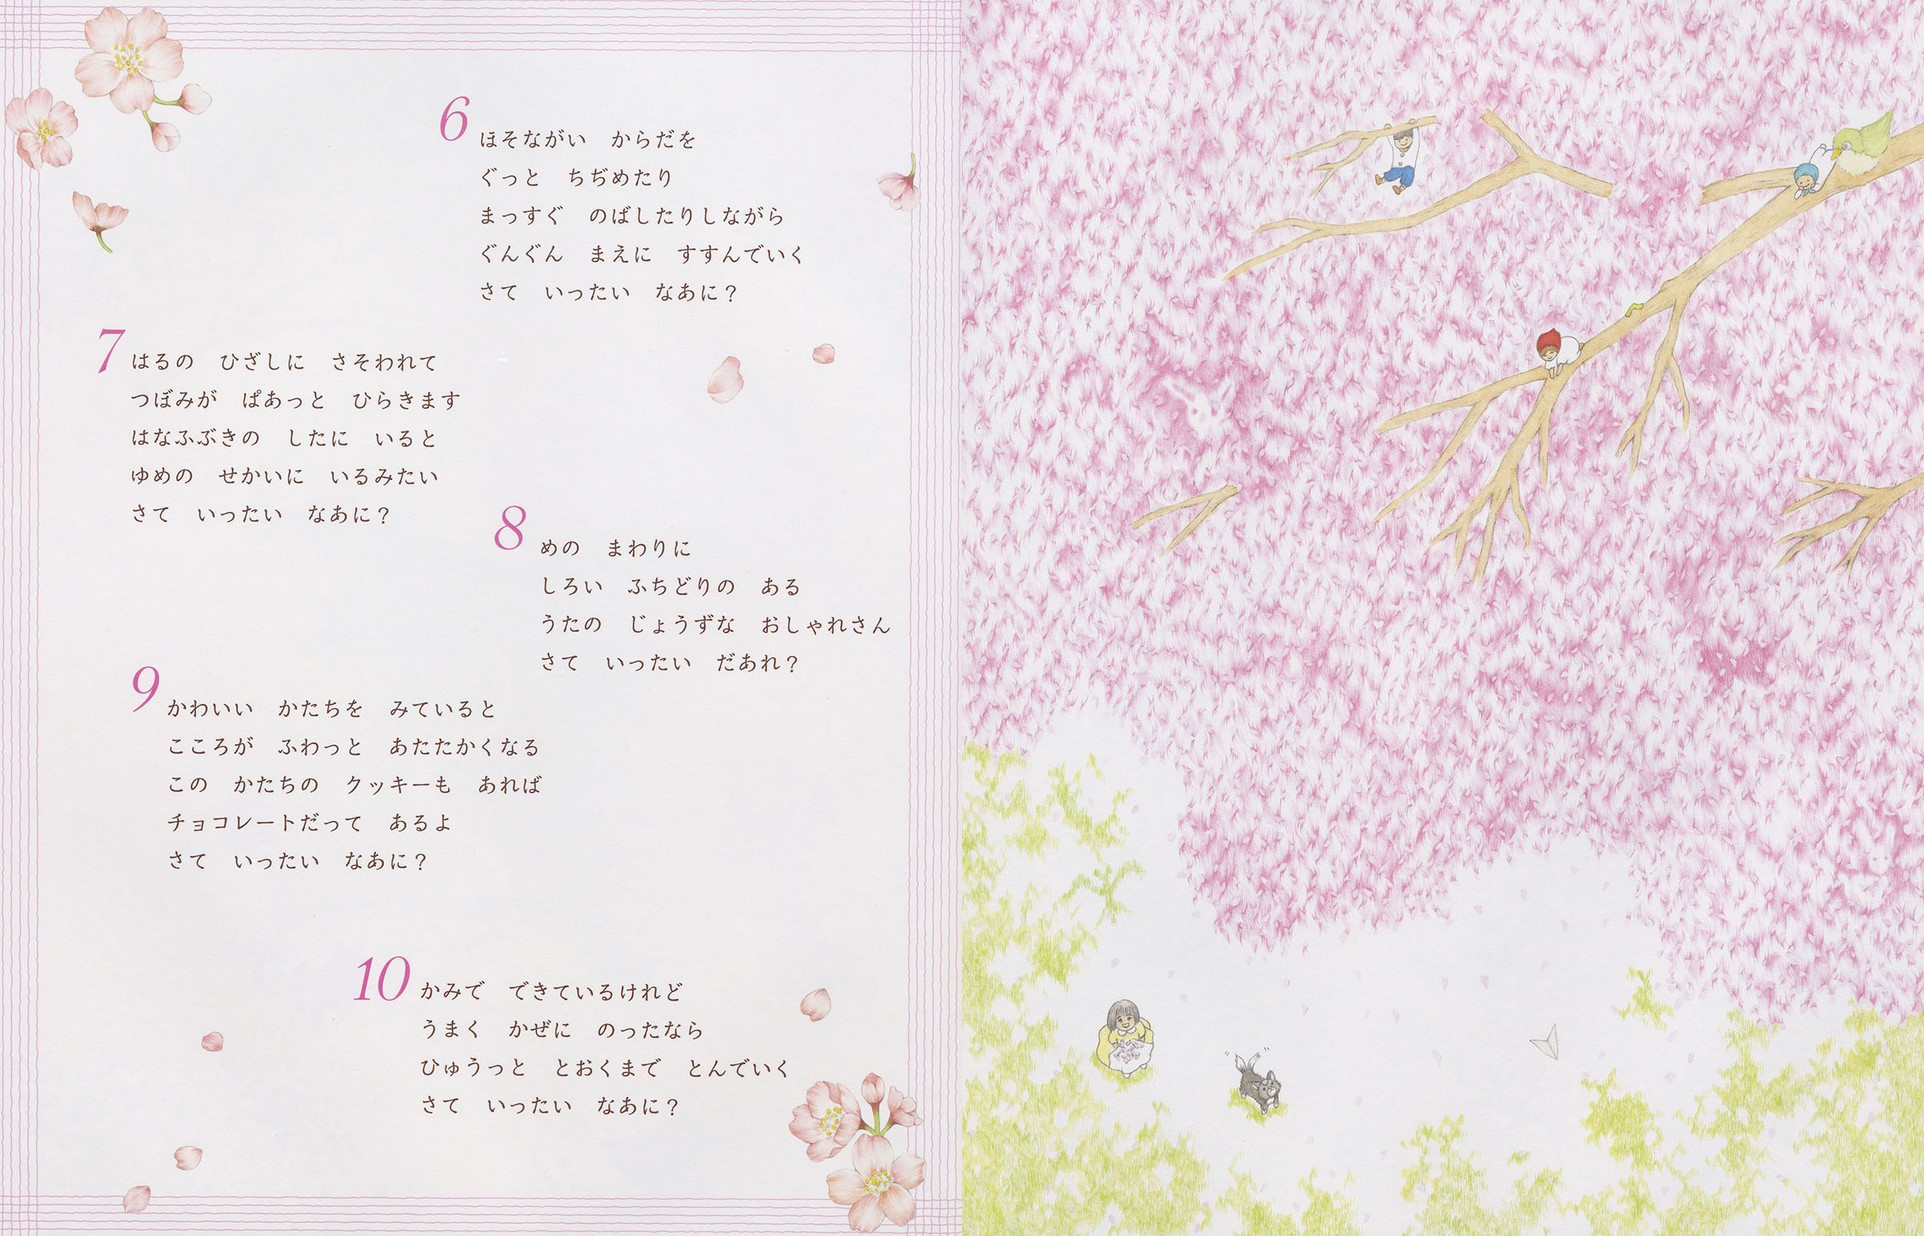 6
ほそながい　からだを
ぐっと　ちぢめたり
まっすぐ　のばしたりしながら
ぐんぐん　まえに　すすんでいく
さて　いったい　なあに？
7
はるの　ひざしに　さそわれて
つぼみが　ぱあっと　ひらきます
はなふぶきの　したに　いると
ゆめの　せかいに　いるみたい
さて　いったい　なあに？
8
めの　まわりに
しろい　ふちどりの　ある
うたの　じょうずな　おしゃれさん
さて　いったい　だあれ？
9
かわいい　かたちを　みていると
こころが　ふわっと　あたたかくなる
この　かたちの　クッキーも　あれば
チョコレートだって　あるよ
さて　いったい　なあに？
10
かみで　できているけれど
うまく　かぜに　のったなら
ひゅうっと　とおくまで　とんでいく
さて　いったい　なあに？